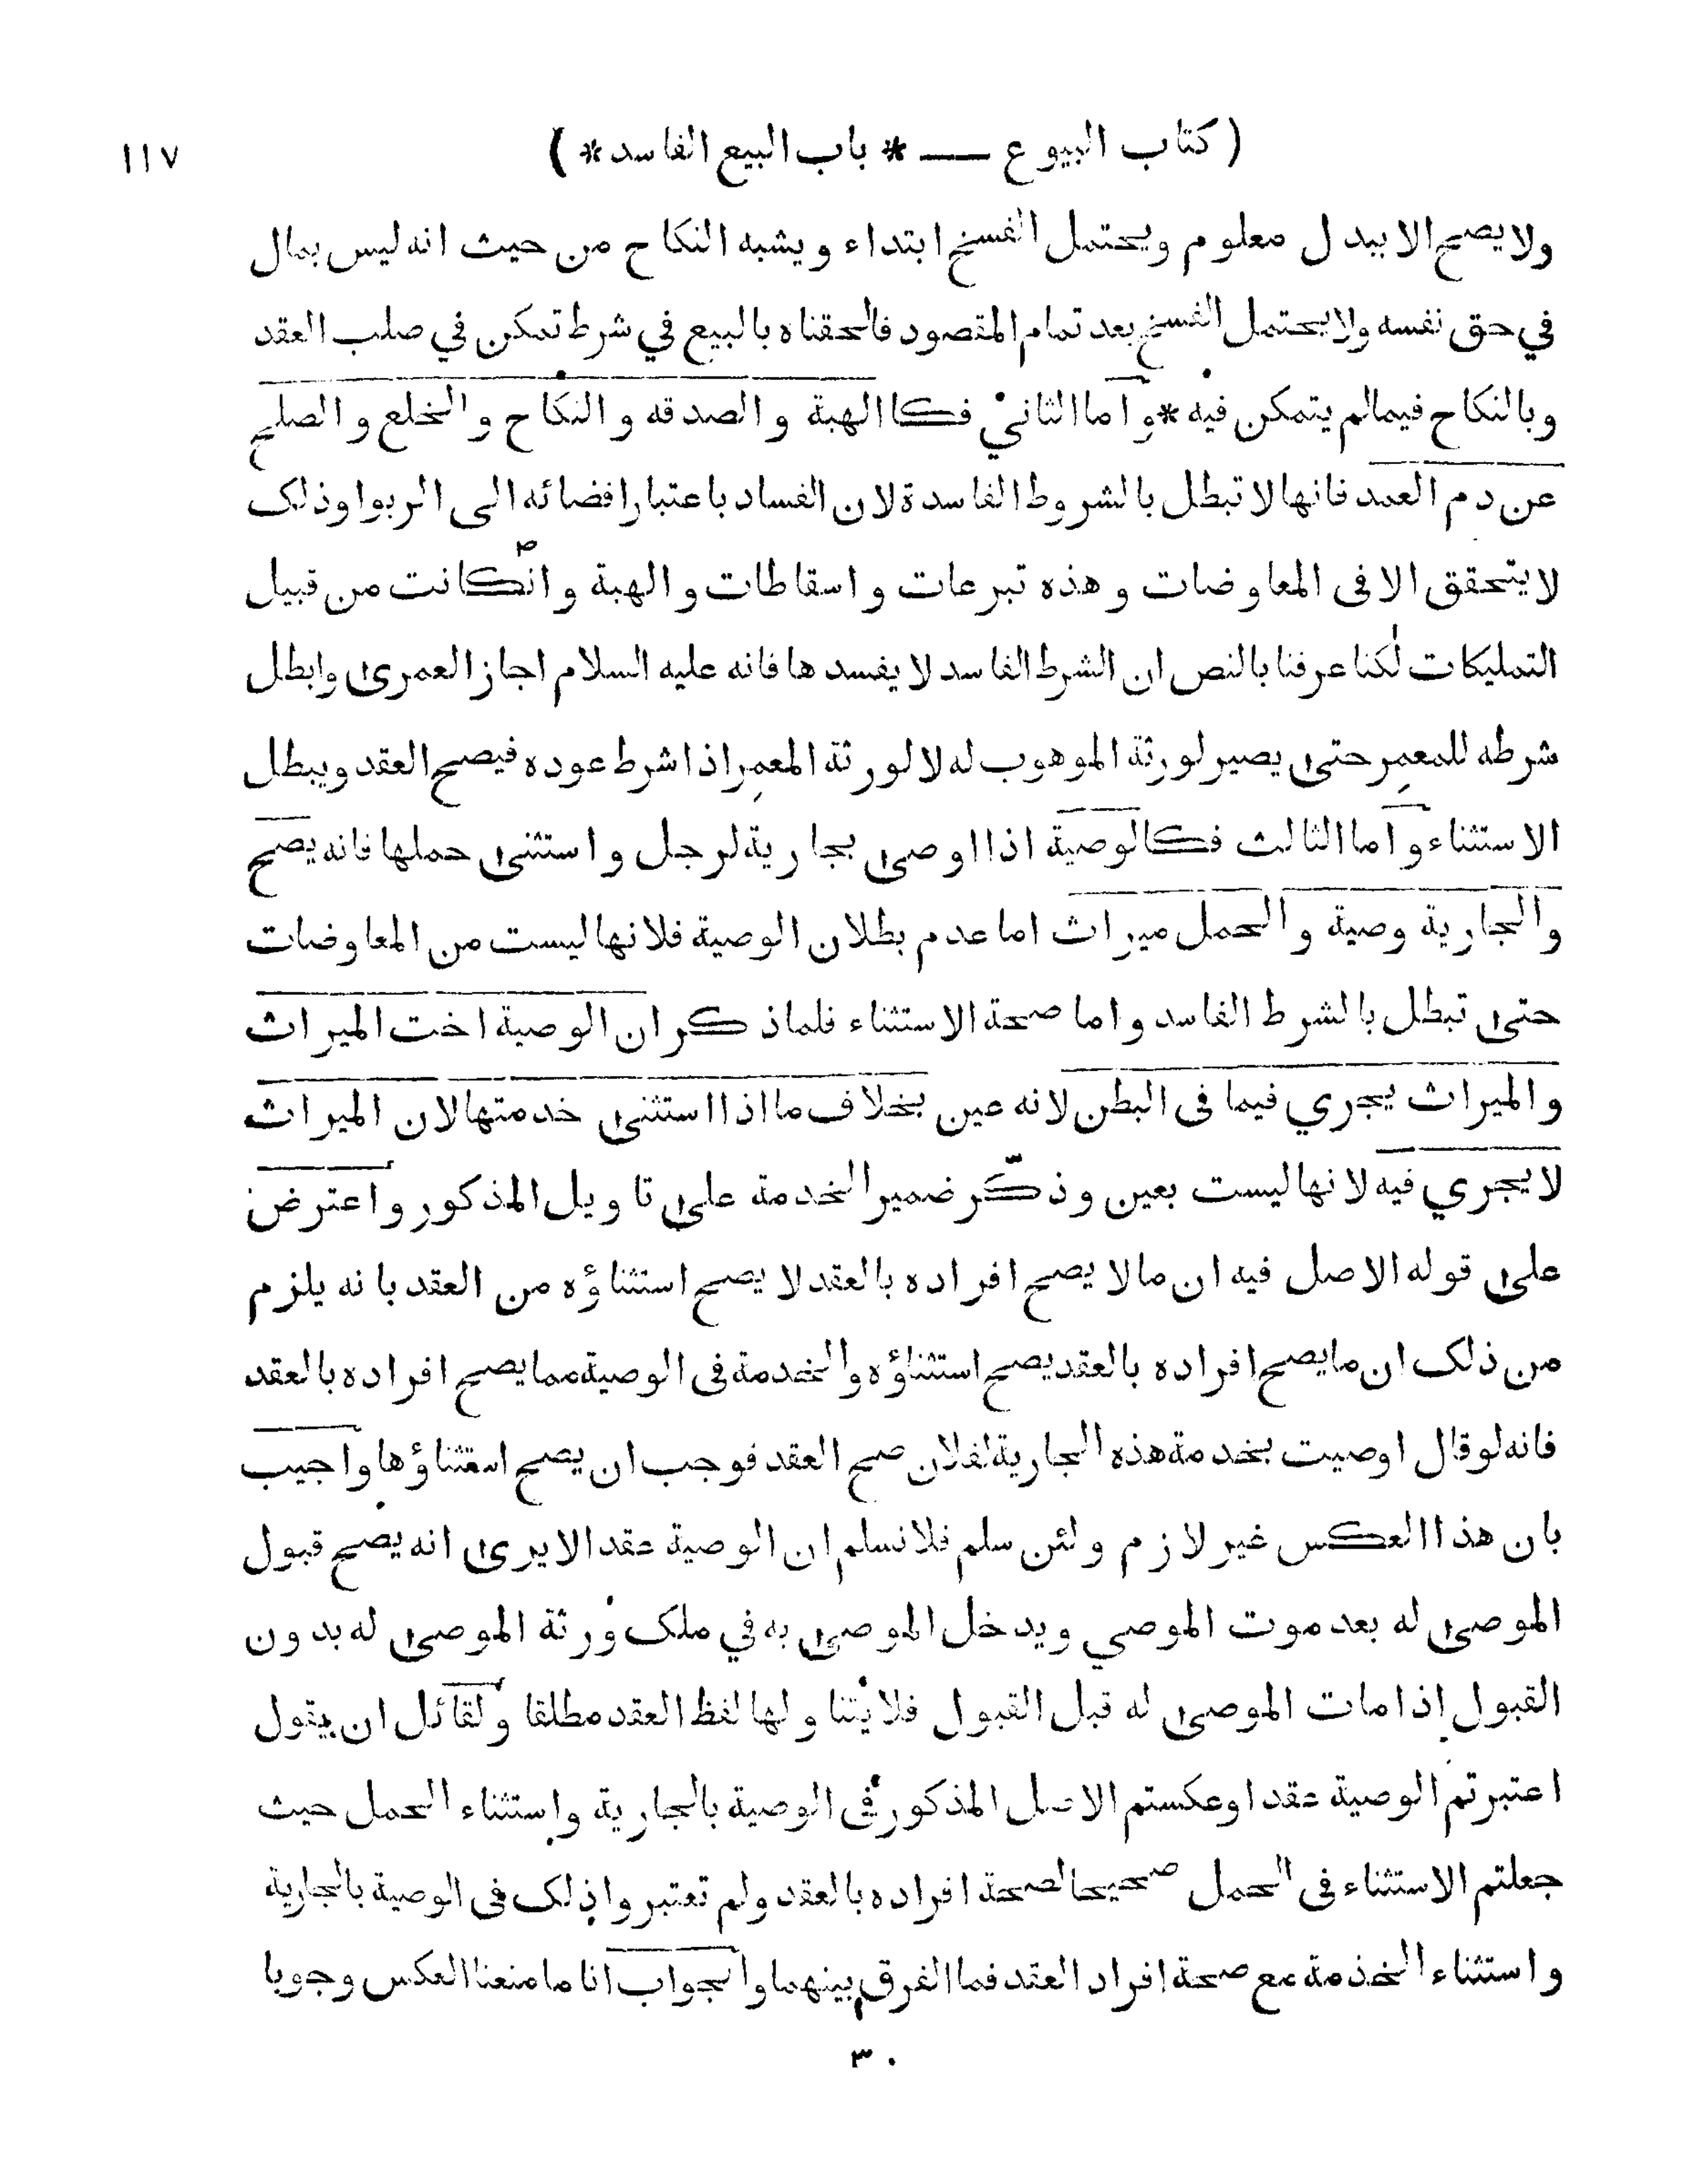 ( كتاب البيوع — * باب البيع الفاسد * )
١١٧
ولا يصح الا ببدل معلوم ويحتمل الفسخ ابتداء ويشبه النكاح من حيث انه ليس بمال
في حق نفسه ولا يحتمل الفسخ بعد تمام المقصود فالحقناه بالبيع في شرط تمكن في صلب العقد
وبالنكاح فيما لم يتمكن فيه * واما الثاني فكاالهبة والصدقه والنكاح والخلع والصلح
عن دم العمد فانها لا تبطل بالشروط الفاسدة لان الفساد باعتبار افضائه الى الربوا وذلك
لا يتحقق الا في المعاوضات وهذه تبرعات واسقاطات والهبة وانكانت من قبيل
التمليكات لكنا عرفنا بالنص ان الشرط الفاسد لا يفسدها فانه عليه السلام اجاز العمرى وابطل
شرطه للمعمِر حتى يصير لورثة الموهوب له لا لورثة المعمِر اذا شرط عوده فيصح العقد ويبطل
الاستثناء واما الثالث فكالوصية اذا اوصى بجارية لرجل واستثنى حملها فانه يصح
والجارية وصية والحمل ميراث اما عدم بطلان الوصية فلانها ليست من المعاوضات
حتى تبطل بالشرط الفاسد واما صحة الاستثناء فلما ذكر ان الوصية اخت الميراث
والميراث يجري فيما فى البطن لانه عين بخلاف ما اذا استثنى خدمتها لان الميراث
لا يجري فيه لانها ليست بعين وذكّر ضمير الخدمة على تاويل المذكور واعترض
على قوله الاصل فيه ان ما لا يصح افراده بالعقد لا يصح استثناؤه من العقد بانه يلزم
من ذلك ان ما يصح افراده بالعقد يصح استثناؤه والخدمة فى الوصية مما يصح افراده بالعقد
فانه لو قال اوصيت بخدمة هذه الجارية لفلان صح العقد فوجب ان يصح استثناؤها واجيب
بان هذا العكس غير لازم ولئن سلم فلا نسلم ان الوصية عقد الا يرى انه يصح قبول
الموصى له بعد موت الموصي ويدخل الموصى به في ملك ورثة الموصى له بدون
القبول اذا مات الموصى له قبل القبول فلا يتناولها لفظ العقد مطلقا ولقائل ان يقول
اعتبرتم الوصية عقدا وعكستم الاصل المذكور في الوصية بالجارية واستثناء الحمل حيث
جعلتم الاستثناء فى الحمل صحيحا لصحة افراده بالعقد ولم تعتبروا ذلك فى الوصية بالجارية
واستثناء الخذمة مع صحة افراد العقد فما الفرق بينهما والجواب انا ما منعنا العكس وجوبا
٣٠